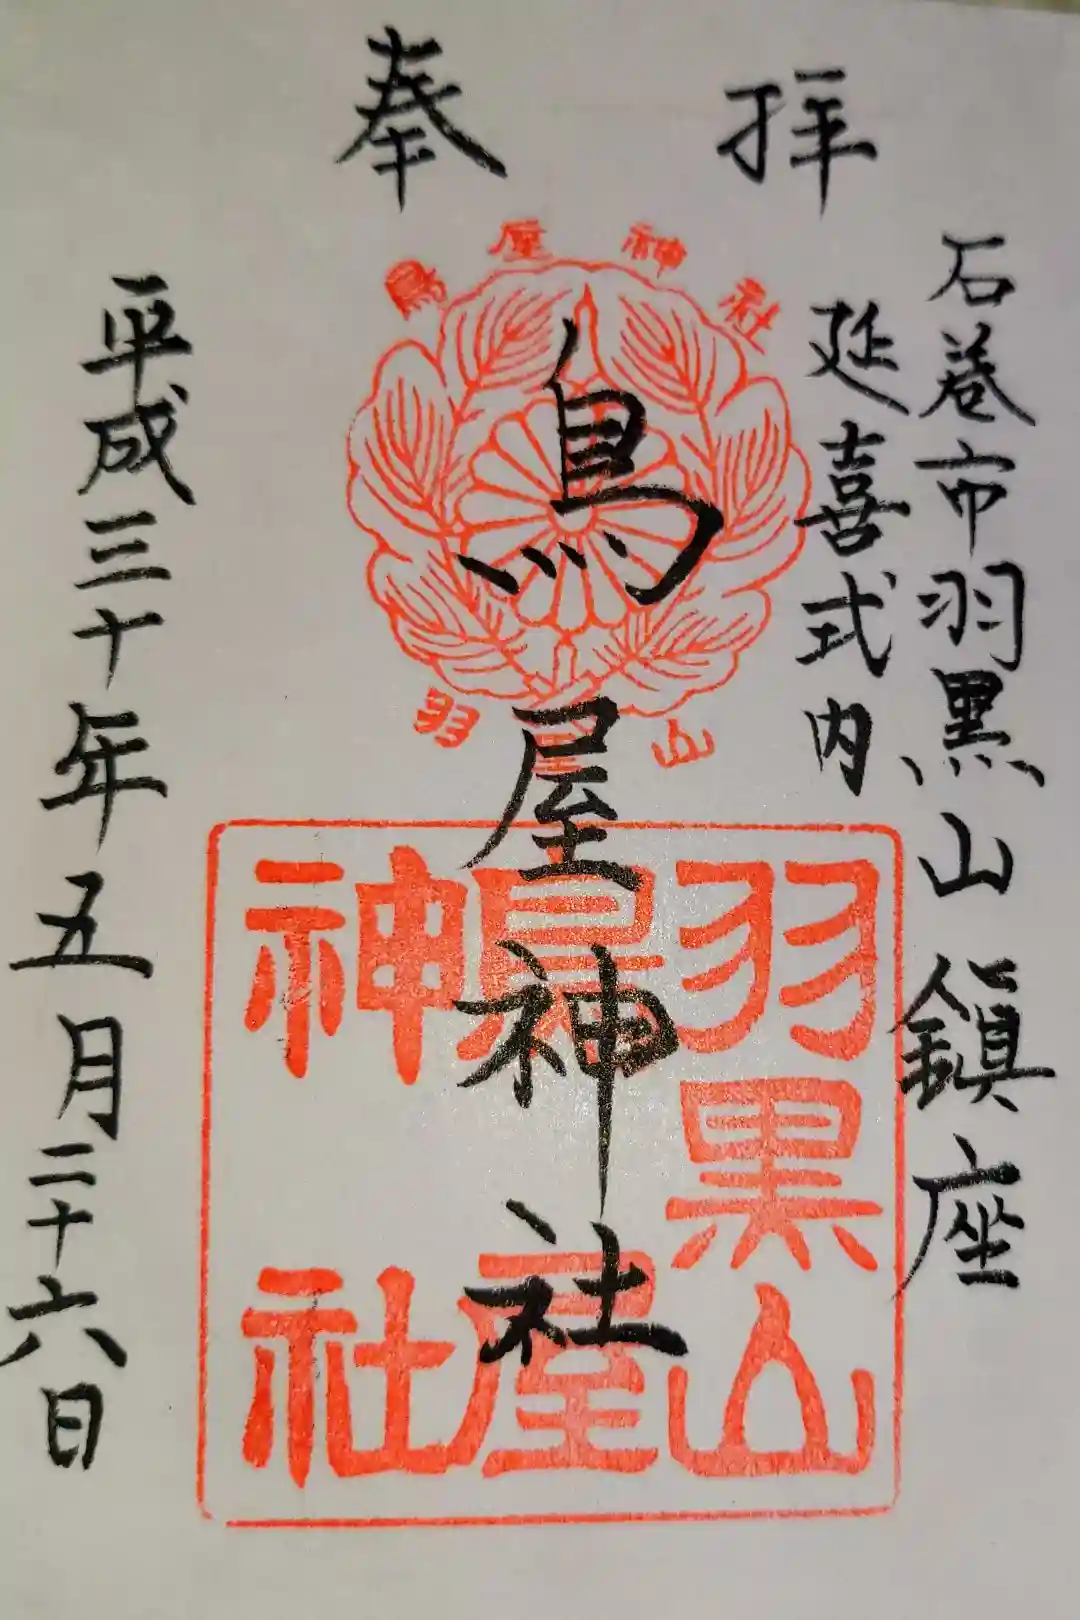 奉拝
石巻市羽黒山鎮座
延喜式内
鳥屋神社
鳥屋神社
羽黒山
羽黒山
鳥屋
神社
平成三十年五月二十六日